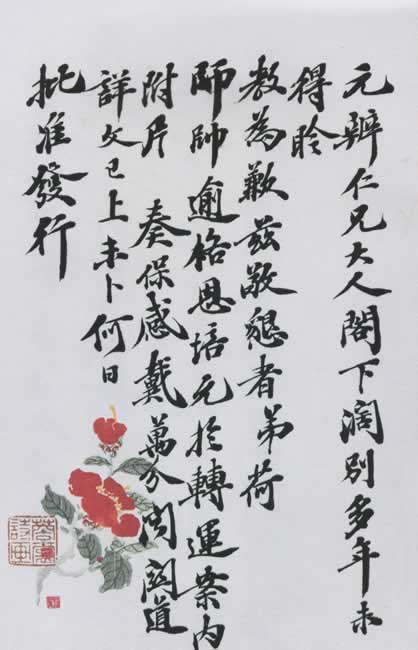 元仁兄大人閣下濶別多年未
得聆
教為歉茲敬懇者弟荷
師帥逾格恩培元於轉運案內
附片 奏保感戴萬分聞關道
詳文已上未卜何日
批准發行